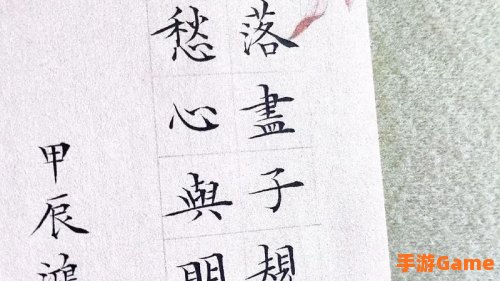 落盡子規
愁心與明
甲辰鴻
手游Game